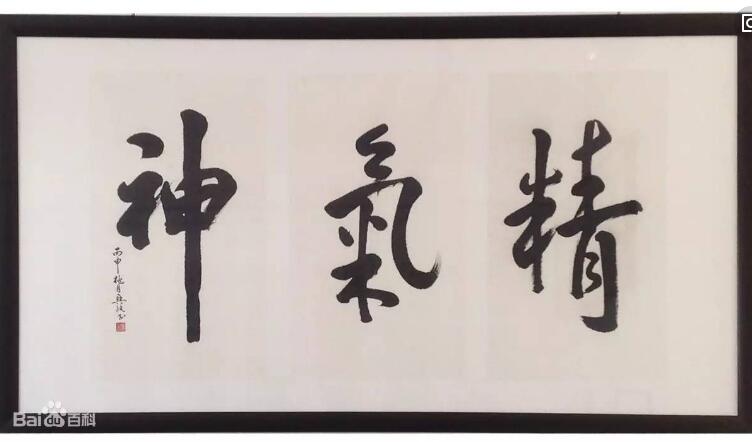 精氣神
丙申桃月
Baidu百科